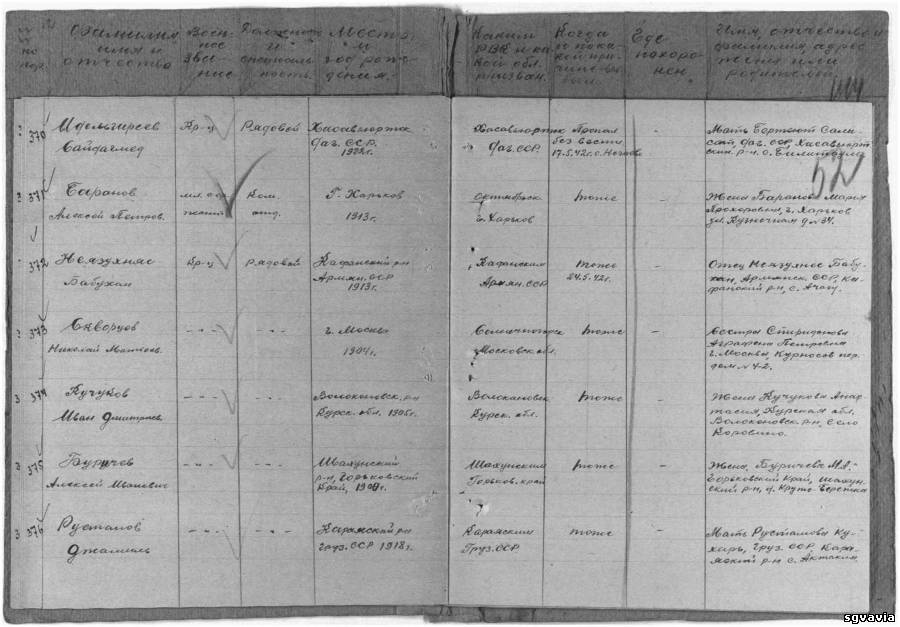 № по пор.
Фамилия имя и отчество
Воен-ное зва-ние
Должност и специаль-ность.
Место и год рож-дения.
Каким РВК и ка-кой обл. призван.
Когда и по ка-кой при-чине вы-был.
Где похоро-нен.
Имя, отчество и фамилия, адрес жены или родителей.
52
370
Идельгиреев Сайдагмед
Кр-ц
Рядовой
Хасавюртск Даг. ССР. 1922г.
Хасавюртск Даг. ССР.
Пропал без вести 17.5.42г.
-
Мать Сали-сат, Даг. ССР, Хасавюрт-ский р-н с.
371
Баранов Алексей Петров.
мл. сер-жант
Ком. отд.
г. Харьков 1913г.
Октябрьск г. Харьков
тоже
-
Жена Баранова Мария Прохоровна, г. Харьков ул. Кузнечная д № 34.
372
Бабухан
Кр-ц
рядовой
Кафанский рн Армян. ССР 1913г.
Кафанским Армян. ССР
тоже 24.5.42г.
-
Отец Бабу-хан, Армянск. ССР, Ка-фанский р-н, с. Ачагу.
373
Скворцов Николай Матвеев.
- - -
- - -
г. Москва 1904г.
Солнечногорск Московск. обл.
тоже
-
Сестра Спиридонова Аграфена Петровна г. Москва, Курносов пер. дом № 4-2.
374
Кучуков Иван Дмитриев
- - -
- - -
Волоконовск. рн Курск. обл. 1905г.
Волоконовск Курск. обл.
тоже
-
Жена Кучукова Анас-тасия, Курская обл. Волоконовск. р-н, село Коровино.
375
Буричев Алексей Иванович
- - -
- - -
Шахунский р-н, Горьковский край, 1900г.
Шахунским Горьков. край
тоже
-
Жена, Буричева М.А.- Горьковский край, Шахун-ский р-н, д.
376
Рустамов Джамиль
- - -
- - -
Караязский рн Груз. ССР 1918г.
Караязским Груз. ССР
тоже
-
Мать Рустамова Ку-харь, Груз. ССР Кара-язский р-н с.
sgvavia